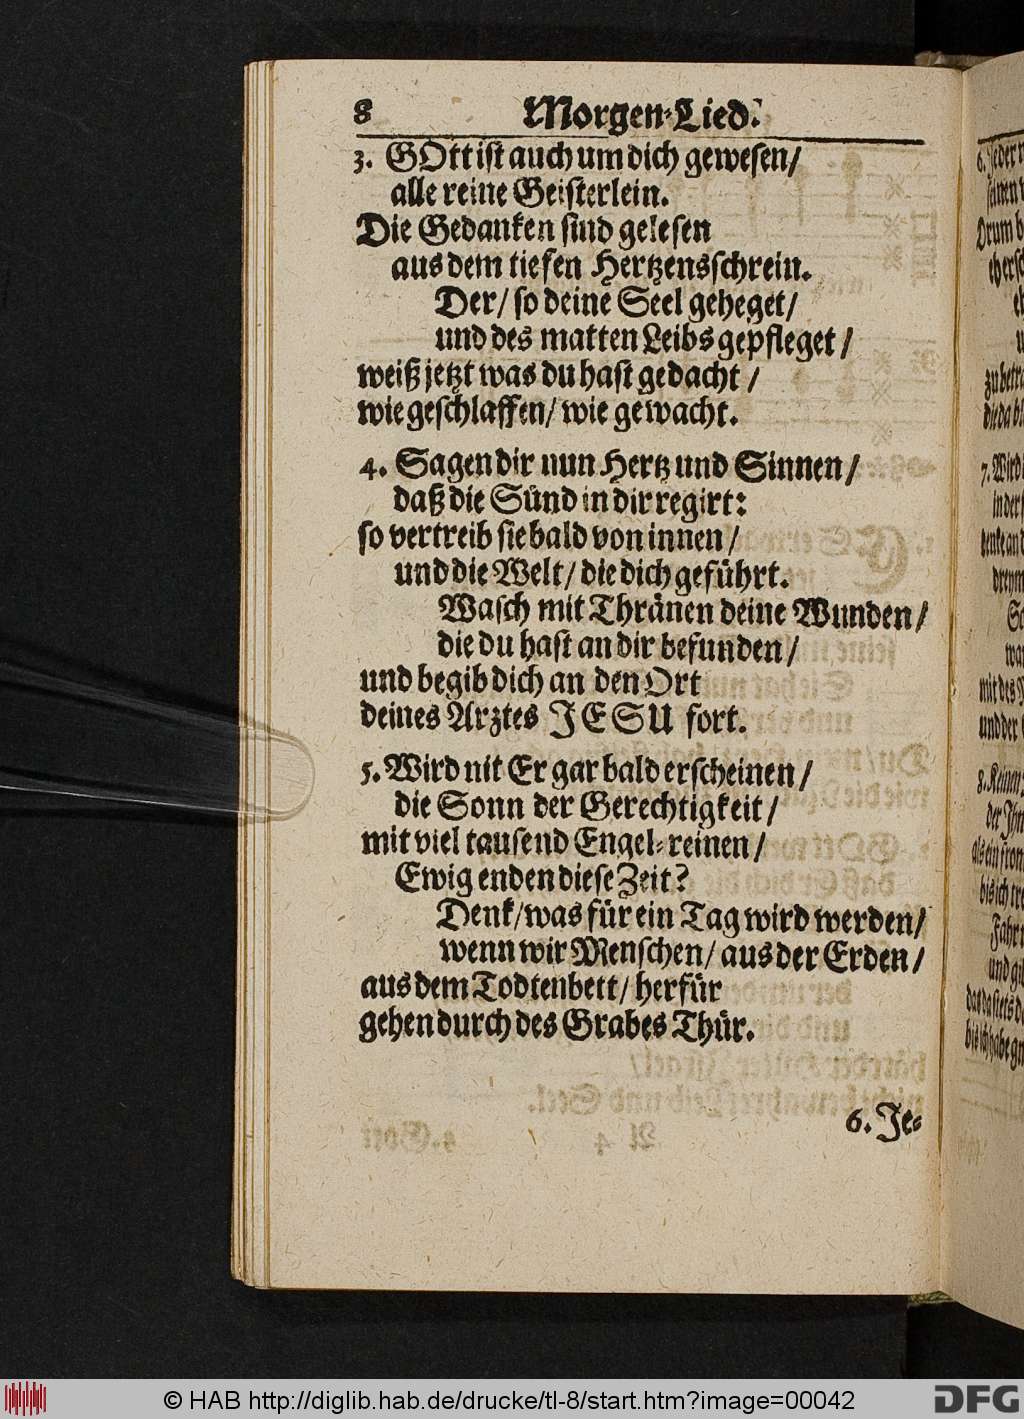 8 Morgen-Lied.
3. GOtt ist auch um dich gewesen/
alle reine Geisterlein.
Die Gedanken sind gelesen
aus dem tiefen Hertzensschrein.
Der/ so deine Seel geheget/
und des matten Leibs gepfleget/
weiß jetzt was du hast gedacht/
wie geschlaffen/ wie gewacht.
4. Sagen dir nun Hertz und Sinnen/
daß die Sünd in dir regirt:
so vertreib sie bald von innen/
und die Welt/ die dich geführt.
Wasch mit Thränen deine Wunden/
die du hast an dir befunden/
und begib dich an den Ort
deines Arztes JESU fort.
5. Wird nit Er gar bald erscheinen/
die Sonn der Gerechtigkeit/
mit viel tausend Engel-reinen/
Ewig enden diese Zeit?
Denk/ was für ein Tag wird werden/
wenn wir Menschen/ aus der Erden/
aus dem Todtenbett/ herfür
gehen durch des Grabes Thür.
6. Je-
© HAB http://diglib.hab.de/drucke/tl-8/start.htm?image=00042
DFG